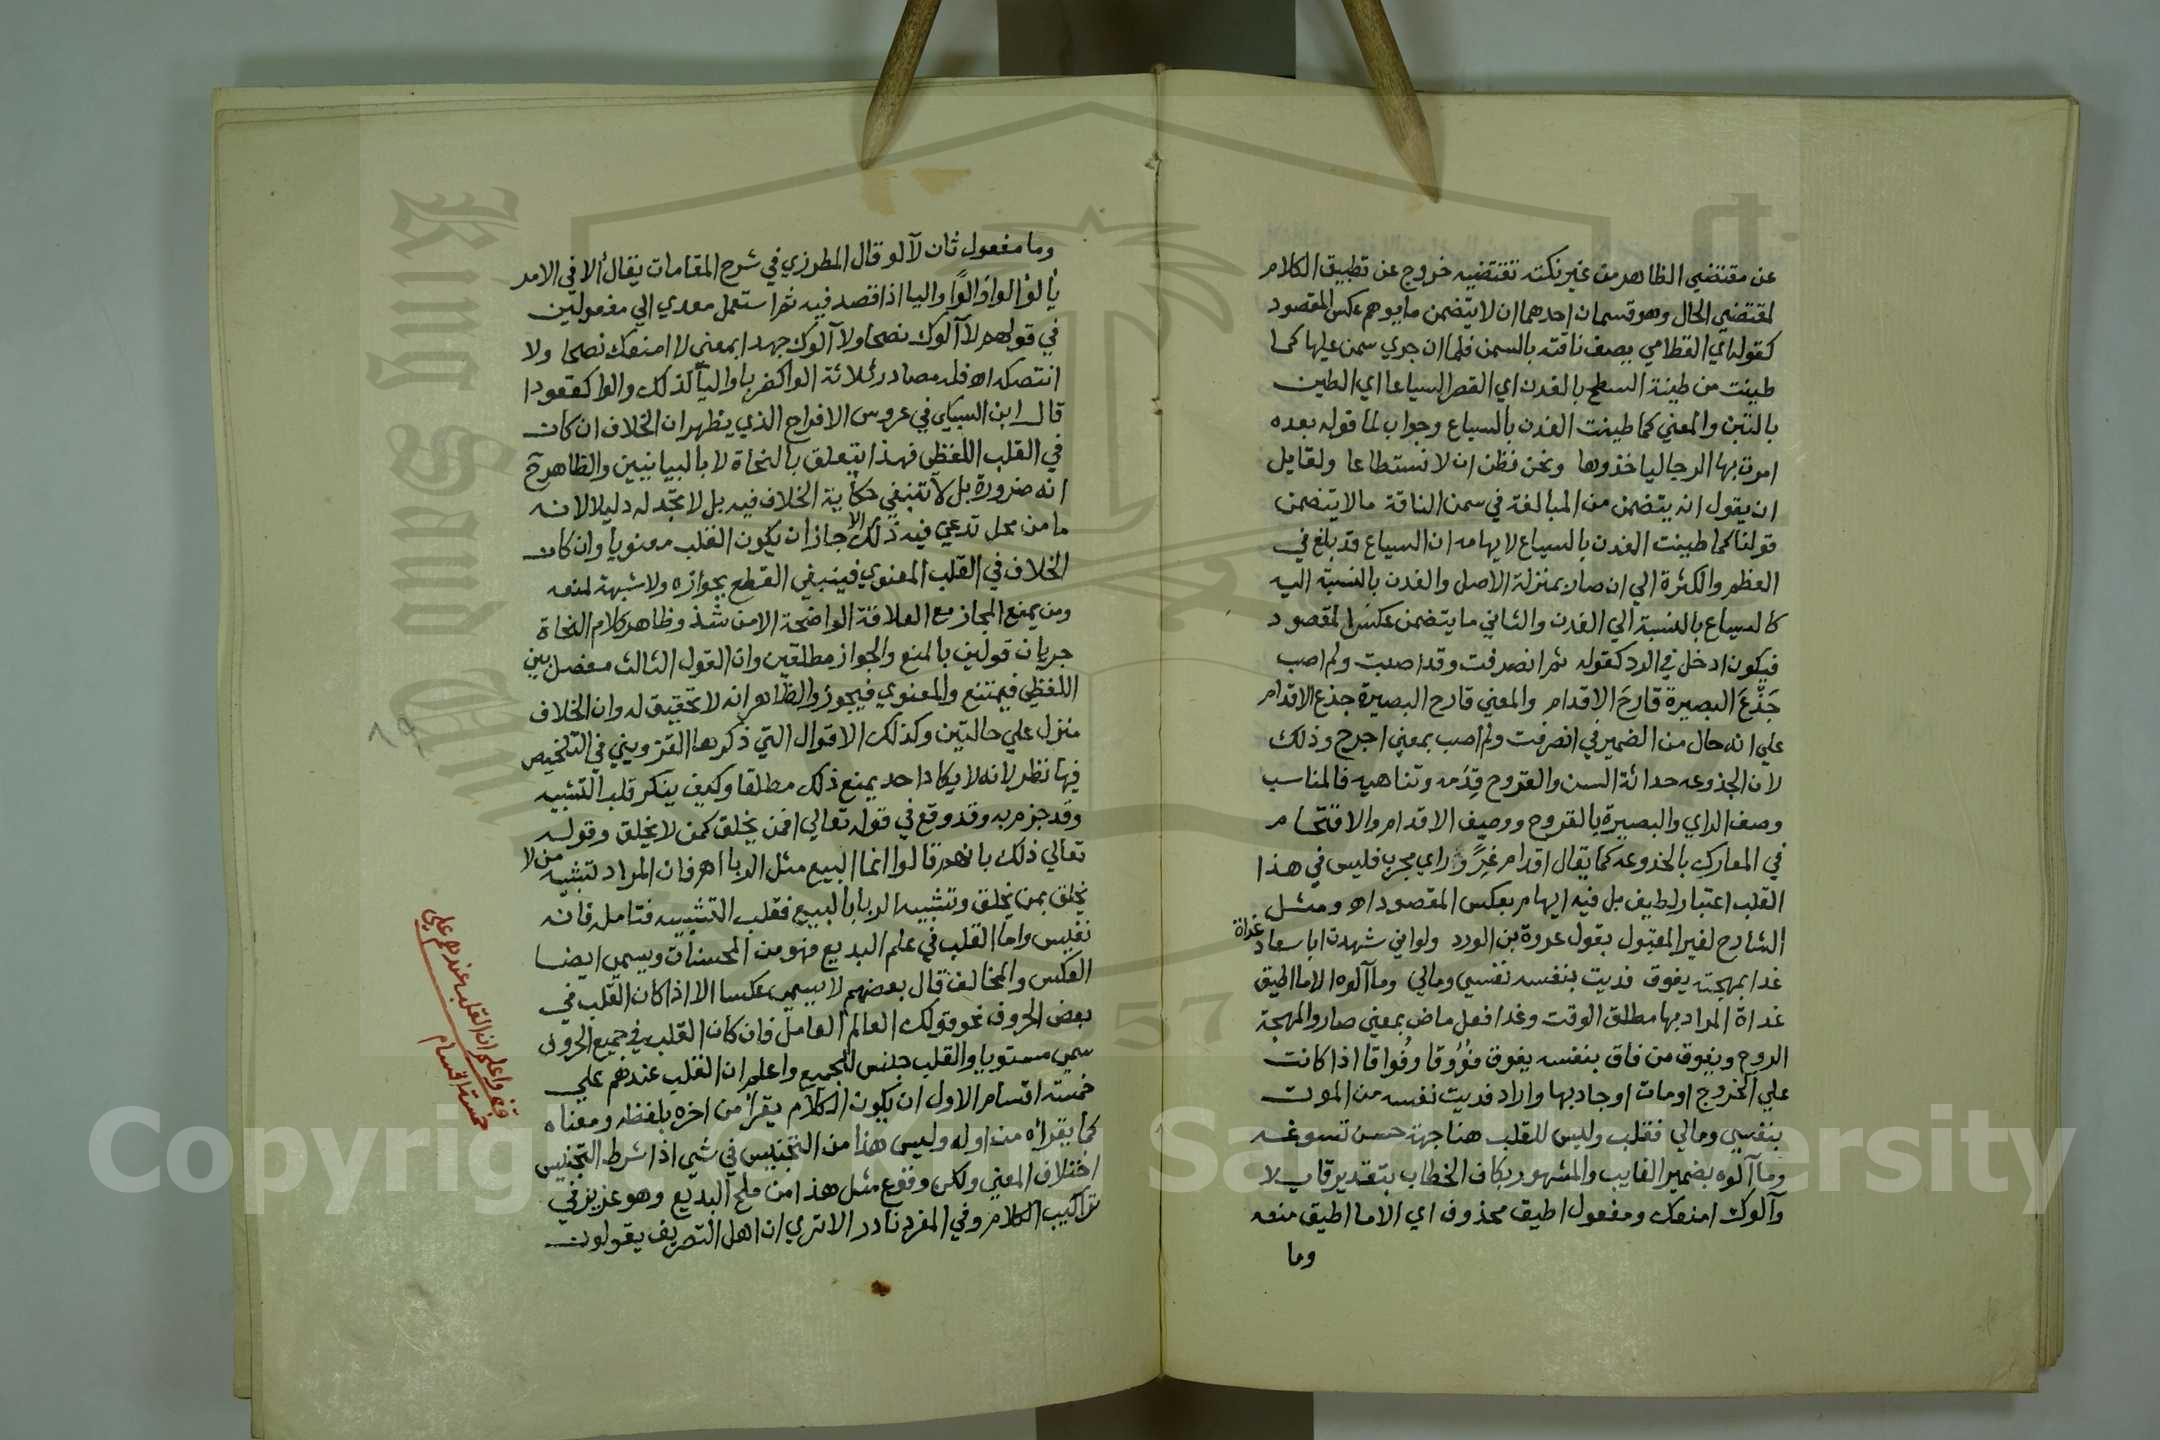 عن مقتضي الظاهر من غير نكته تقتضيه خروج عن تطبيق الكلام
لمقتضي الحال وهو قسمان احدهما ان لا يتضمن ما يوهم عكس المقصود
كقوله اي القطامي يصف ناقته بالسمن فلما ان جري سمن عليها كما
طينت من طينة السطح بالفدن اي القصر السياعا اي الطين
بالتبن والمعني كما طينت الفدن بالسياع وجواب لما قوله بعده
امرت بها الرجال ياخذوها ونحن نظن ان لا نستطاعا ولقايل
ان يقول انه يتضمن من المبالغة في سمن الناقة ما لا يتضمن
قولنا كما طينت الفدن بالسياع لايهامه ان السياع قد بلغ في
العظم والكثرة الي ان صار بمنزلة الاصل والفدن بالنسبة اليه
كالسياع بالنسبة الي الفدن والثاني ما يتضمن عكس المقصود
فيكون ادخل في الرد كقوله ثم انصرفت وقد اصبت ولم اصب
جَذَعَ البصيرة قارحَ الاقدام والمعني قارح البصيرة جذع الاقدام
علي انه حال من الضمير في انصرفت ولم اصب بمعني اجرح وذلك
لان الجذوعه حداثة السن والقروح قِدَمه وتناهيه فالمناسب
وصف الراي والبصيرة بالقروح ووصف الاقدام والاقتحام
في المعارك بالجذوعه كما يقال اقدام غِرٍّ وراي مجرب فليس في هذا
القلب اعتبار لطيف بل فيه ايهام بعكس المقصود اه ومثل
الشارح لغير المقبول بقول عروة بن الورد ولو اني شهدت ابا سعاد غداة
غدا بمهجته يفوق فديت بنفسه نفسي ومالي وما آلوه الا ما اطيق
غداة المراد بها مطلق الوقت وغدا فعل ماض بمعني صار والمهجة
الروح ويفوق من فاق بنفسه يفوق فُوُوقا وفُواقا اذا كانت
علي الخروج او مات او جاد بها واراد فديت نفسه من الموت
بنفسي ومالي فقلب وليس للقلب هنا جهة حسن تسوغه
وما آلوه بضمير الغايب والمشهور بكاف الخطاب بتقدير لا
وآلوك امنعك ومفعول اطيق محذوف اي الا ما اطيق منعه
وما
وما مفعول ثان لآلو قال المطرزي في شرح المقامات يقال ألا في الامر
يألو اُلوا والياا اذا قصد فيه ثم استعمل معدي الي مفعولين
في قولهم لا آلوك نصحا ولا آلوك جهدا بمعني لا امنعك نصحا ولا
انتصكه اه فله مصادر ثلاثة الو اكضربا واليا كذلك والوا كقعودا
قال ابن السبكي في عروس الافراح الذي يظهر ان الخلاف ان كان
في القلب اللفظي فهذا يتعلق بالنحاة لا بالبيانيين والظاهر ح
انه ضرورة بل لا تنبغي حكاية الخلاف فيه بل لا تجد له دليلا لانه
ما من محل تدعي فيه ذلك الا جاز ان يكون القلب معنويا وان كان
الخلاف في القلب المعنوي فينبغي القطع بجوازه ولا شبهة لمنعه
ومن يمنع المجاز مع العلاقة الواضحة الا من شذ وظاهر كلام النحاة
جريان قولين بالمنع والجواز مطلقين وان القول الثالث مفصل بين
اللفظي فيمتنع والمعنوي فيجوز والظاهر انه لا تحقيق له وان الخلاف
منزل علي حالتين وكذلك الاقوال التي ذكرها القزويني في التلخيص
فيها نظر لانه لا يكاد احد يمنع ذلك مطلقا وكيف ينكر قلب التشبيه
وقد جزم به وقد وقع في قوله تعالي افمن يخلق كمن لا يخلق وقوله
تعالي ذلك بانهم قالوا انما البيع مثل الربا اه فان المراد تشبيه من لا
يخلق بمن يخلق وتشبيه الربا بالبيع فقلب التشبيه فتامله فانه
نفيس واما القلب في علم البديع فهو من المحسنات ويسمي ايضا
العكس والمخالف قال بعضهم لا يسمي عكسا الا اذا كان القلب في
بعض الحروف نحو قولك العالم العامل فان كان القلب في جميع الحروف
سمي مستويا والقلب جنس للجميع واعلم ان القلب عندهم علي
خمسة اقسام الاول ان يكون الكلام يقرأ من اخره بلفظه ومعناه
كما يقرأه من اوله وليس هذا من التجنيس في شي اذ شرط التجنيس
اختلاف المعني ولكن وقوع مثل هذا من ملح البديع وهو عزيز في
تراكيب الكلام وفي المفرد نادر الا تري ان اهل التصريف يقولون
قف واعلم ان القلب عندهم علي
خمسة اقسام
١٩
Copyright © King Saud University
King Saud University
1957